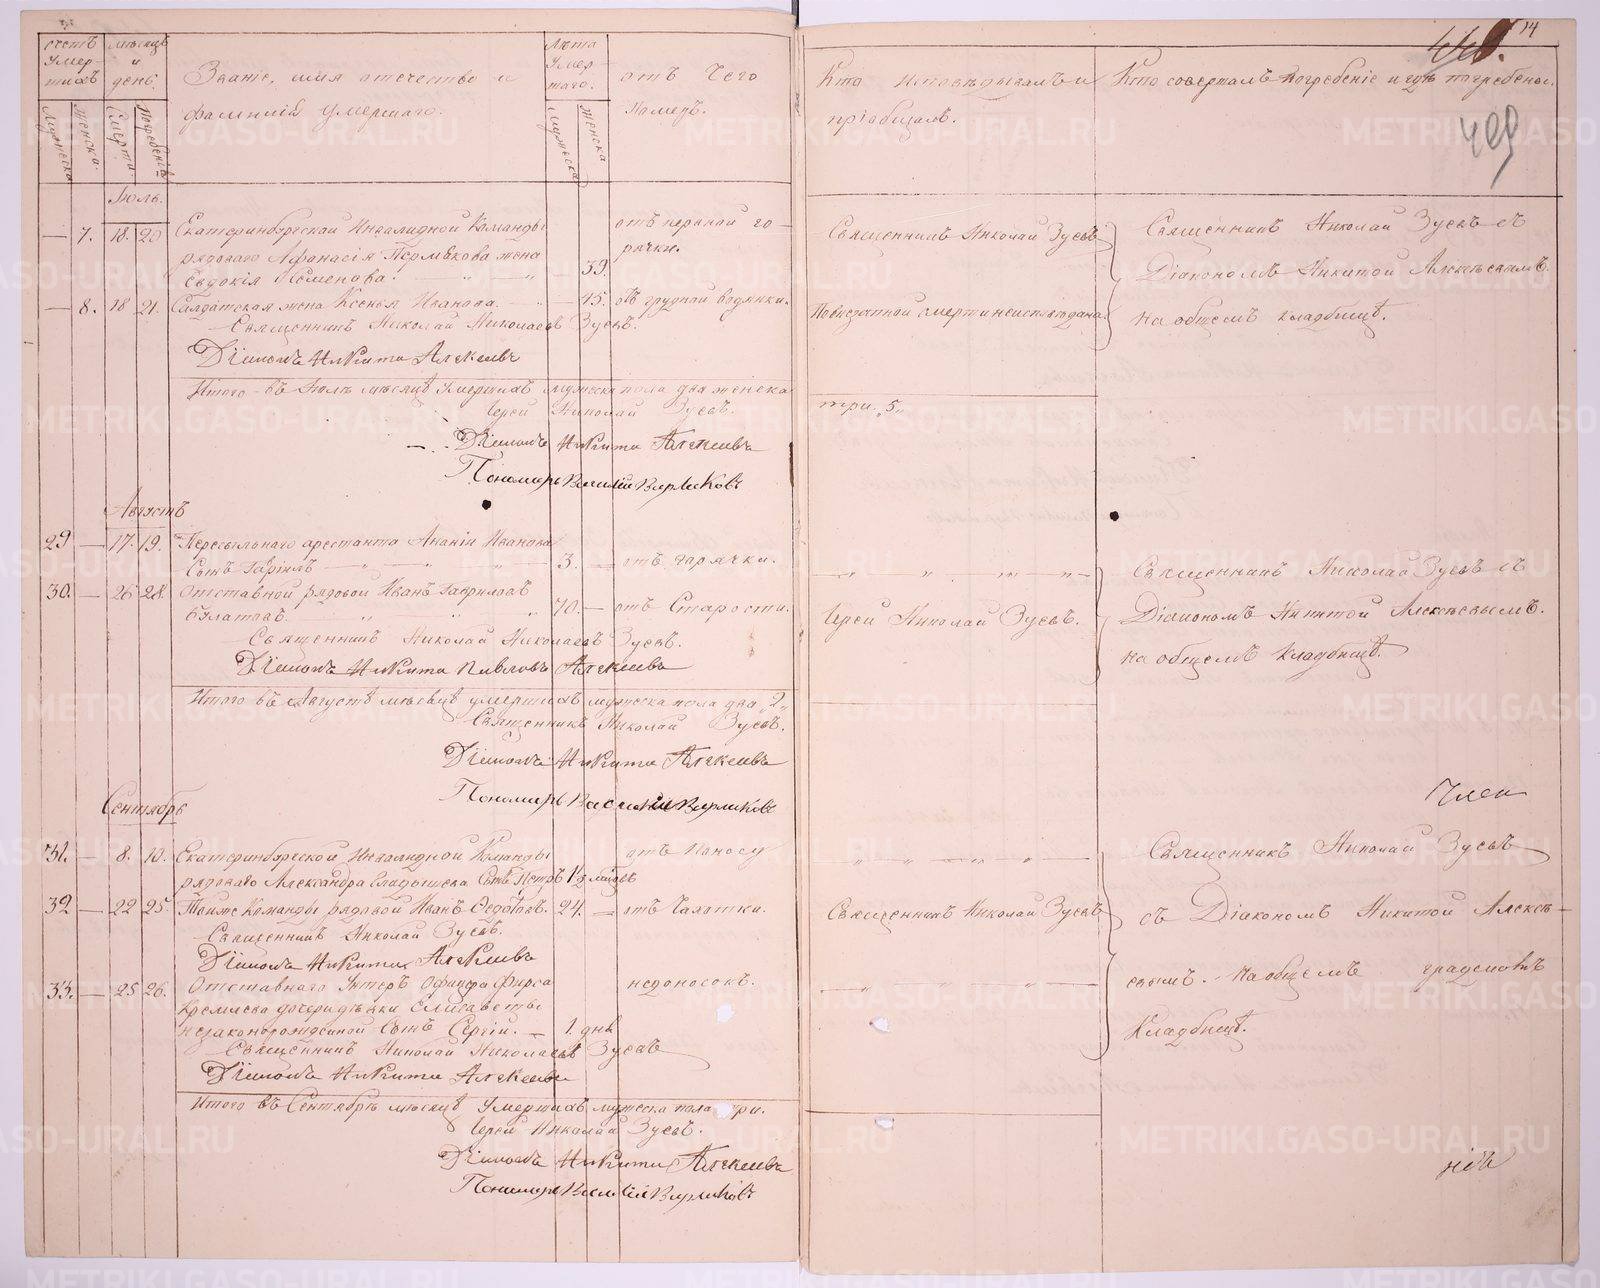 счетъ умер-тихъ
мѣсяцъ и день.
Званіе, имя отечество и
фамилія умершаго.
Лѣта умер-таго.
отъ чего
Померъ.
Мужеска
Женска.
Смерти.
Погребенія
Мужеска
женска
Іюль.
— 7. 18. 20 Екатеринбургской Инвалидной Команды
рядоваго Афанасія Пермякова жена
Евдокія Семенова. 39. отъ нервной го-
рячки.
— 8. 18 21. Салдатская жена Ксенья Иванова. — 45. отъ грудной водянки.
Священникъ Николай Николаевъ Зуевъ.
Діаконъ Никита Алексеевъ
Итого въ Іюлѣ мѣсяцѣ умершихъ мужеска пола два женска
Іерей Николай Зуевъ.
Діаконъ Никита Алексеевъ
Пономарь Василій
Августъ
29 — 17. 19. Пересыльнаго арестанта Ананіи Иванова
Сынъ Гаріилъ 3. — отъ горячки.
30. — 26 28. Отставной рядовой Иванъ Гавриловъ
Булатовъ 70. — отъ Старости.
Священникъ Николай Николаевъ Зуевъ.
Діаконъ Никита Павловъ Алексеевъ
Итого въ Августѣ мѣсяцѣ умершихъ мужеска пола два „2„
Священникъ Николай Зуевъ.
Діаконъ Никита Алексеевъ
Пономарь Василій
Сентябрь
31. — 8. 10. Екатеринбургской Инвалидной Команды отъ поносу
рядоваго Александра Сынъ Петръ 1½ мѣсяцъ
32 — 22 25. Тойже Команды рядовой Иванъ Федотовъ. 24. — отъ Чахотки.
Священникъ Николай Зуевъ.
Діаконъ Никита Алексеевъ
33. — 25 26. Отставнаго Унтеръ Офицера Фирса недоносокъ.
Кремлева дочери дѣвки Елисаветы
незаконорожденной Сынъ Сергій. — 1. дня
Священникъ Николай Николаевъ Зуевъ
Діаконъ Никита Алексеевъ
Итого въ Сентябрѣ мѣсяцѣ Умершихъ мужеска пола три.
Іерей Николай Зуевъ.
Діаконъ Никита Алексеевъ
Пономарь Василій
14
409
Кто Исповѣдывалъ и
пріобщалъ.
Кто совершалъ погребеніе и гдѣ погребены.
Священникъ Николай Зуевъ
По внезапной смерти неисповѣдана
Священникъ Николай Зуевъ съ
Діакономъ Никитой Алексѣевымъ.
на общемъ кладбищѣ.
три. „5„
Іерей Николай Зуевъ.
Священникъ Николай Зуевъ съ
Діакономъ Никитой Алексѣевымъ.
на общемъ Кладбищѣ.
Член
Священникъ Николай Зуевъ
Священникъ Николай Зуевъ
съ Діакономъ Никитой Алексѣ-
евымъ. на общемъ градскомъ
Кладбищѣ.
METRIKI.GASO-URAL.RU